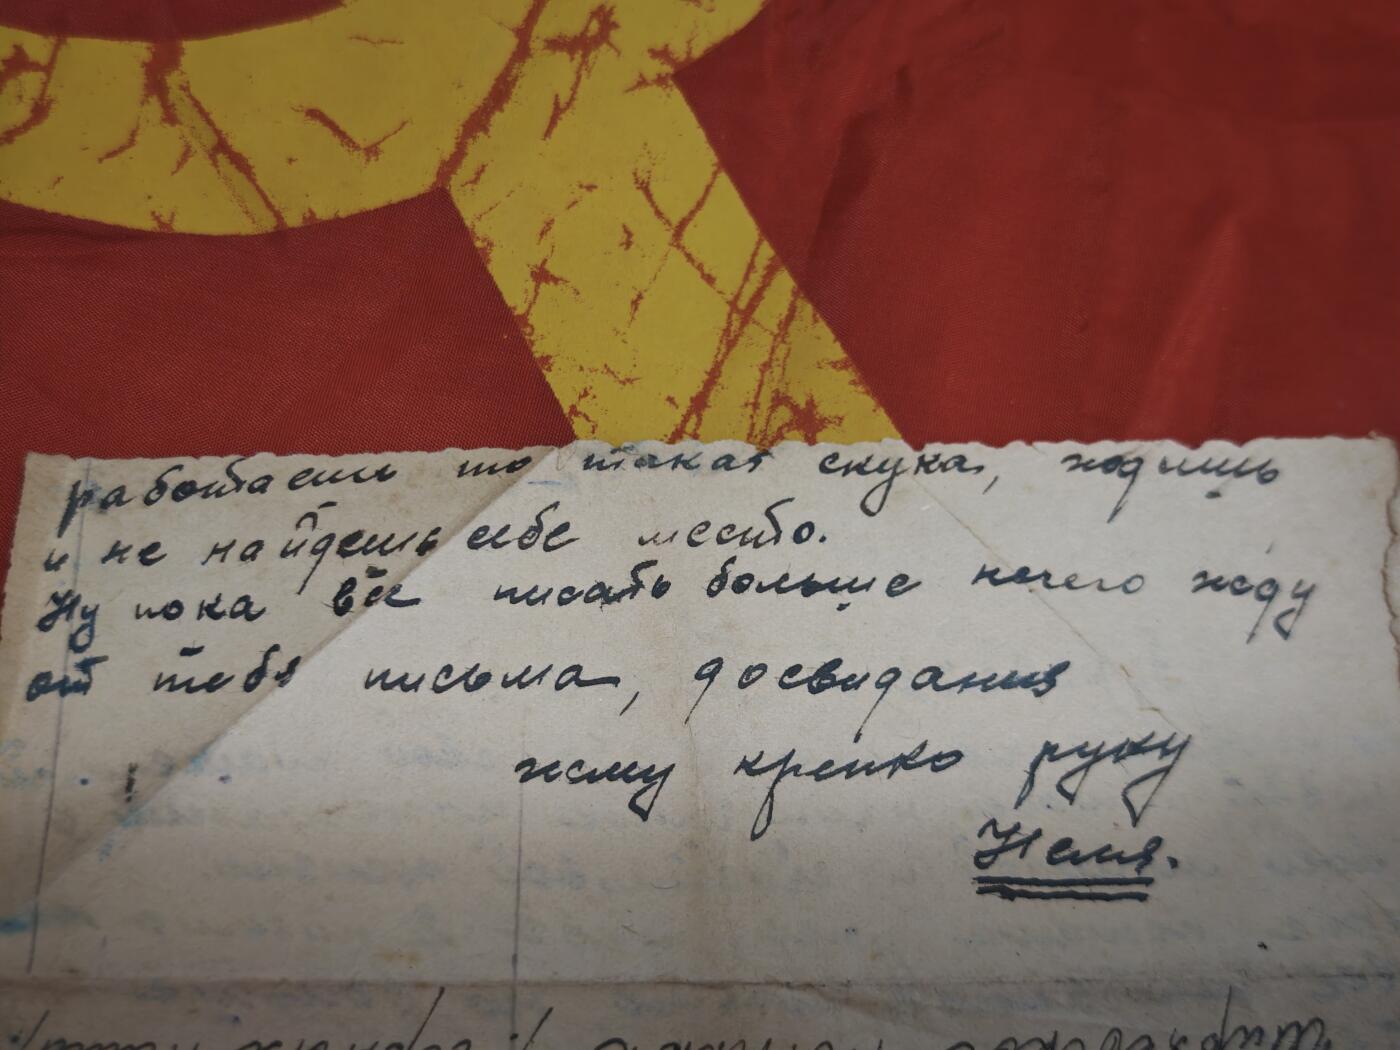 работаешь то такая скука, ходишь
и не найдешь себе место.
Ну пока все писать больше нечего жду
от тебя письма, досвидания
жму крепко руку